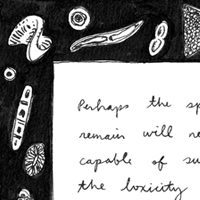 Perhaps the sp
remain will re
capable of su
the toxicity